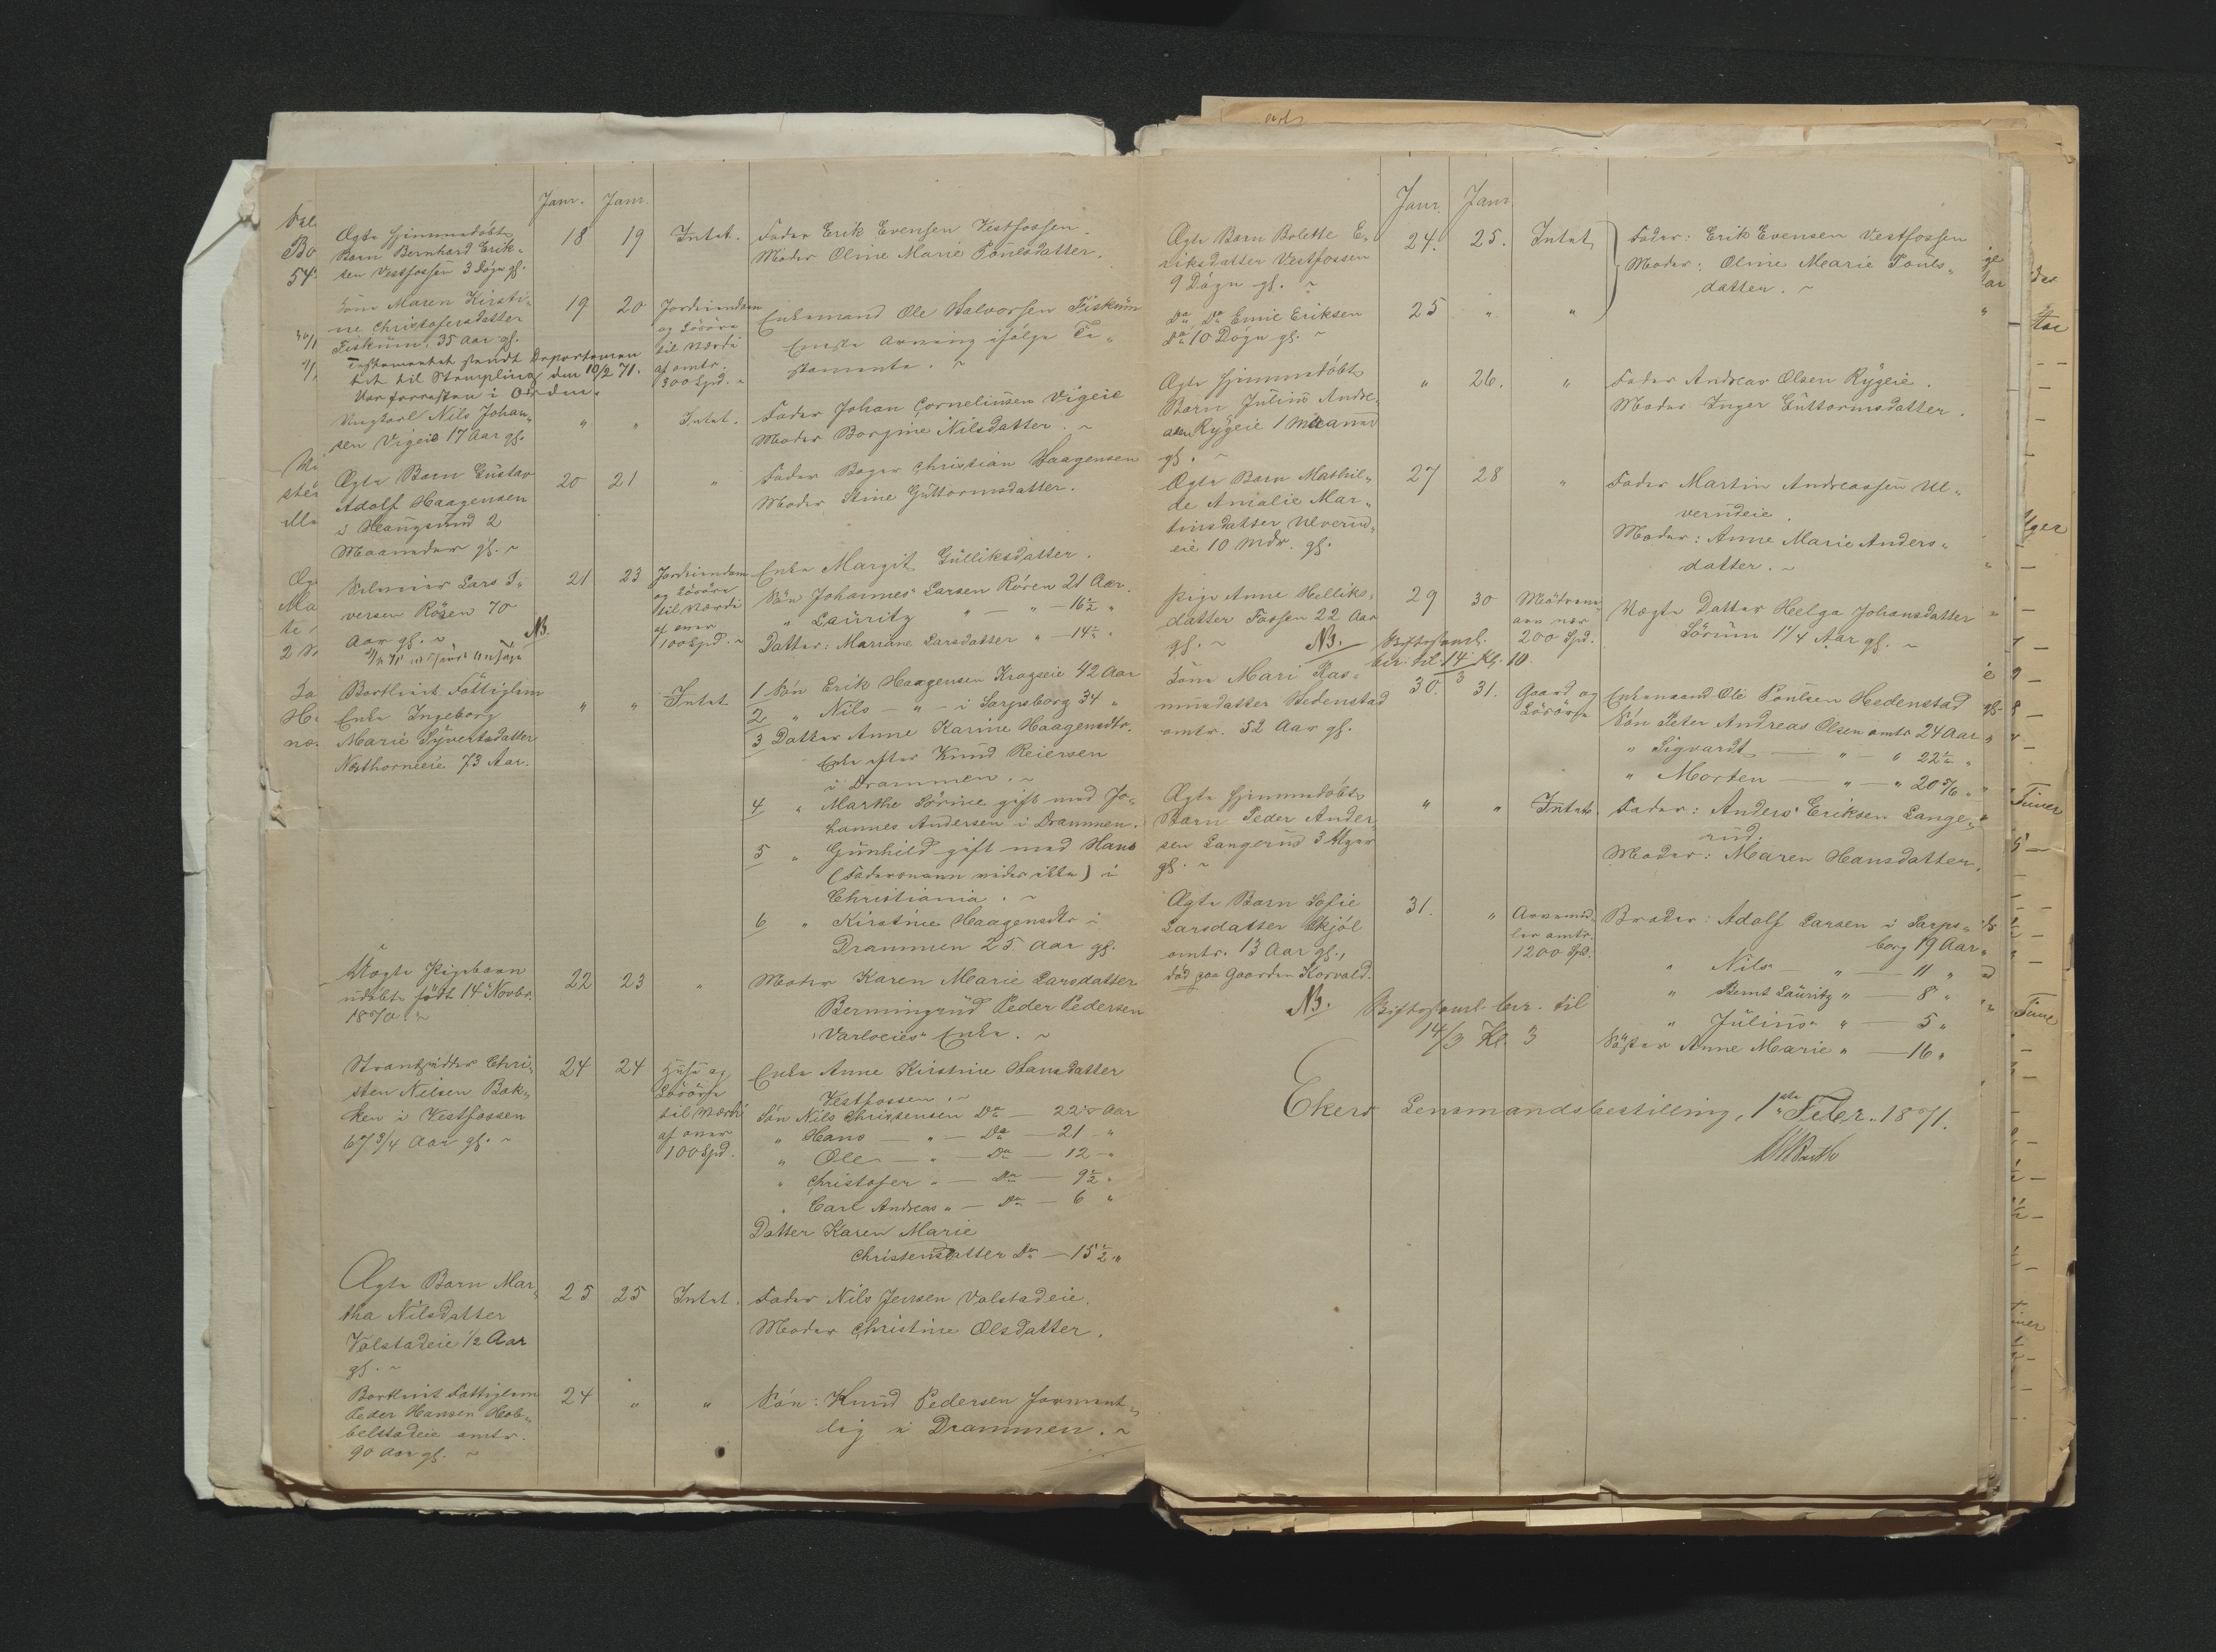 Janr. Janr.
Ægte hjemmedöbt
Barn Bernhard Erik-
sen Vestfossen 3 Dögn gl.
18 19 Intet.
Fader Erik Evensen Vestfossen.
Moder Oline Marie Poulsdatter.
Kone Maren Kirsti-
ne Christofersdatter
Fiskum, 35 Aar gl.
19 20 Jordeiendom
og Lösöre
til Værdi
af omtr.
300 Spd.
Enkemand Ole Halvorsen Fiskum
Eneste Arving ifølge Te-
stamente.
Testamentet sendt Departemen
tet til Stempling den 10/2 71.
Ungkarl Nils Johan-
sen Vigeie 17 Aar gl.
" " Intet.
Fader Johan Corneliusen Vigeie
Moder Borgine Nilsdatter.
Ægte Barn Gustav
Adolf Haagensen
i Haugsund 2
Maaneder gl.
20 21 "
Fader Bager Christian Haagensen
Moder Stine Guttormsdatter.
Selveier Lars I-
versen Rören 70
Aar gl.
NB.
21 23 Jordeiendom
og Lösöre
til Værdi
af over
100 Spd.
Enke Margit Gulliksdatter.
Sön Johannes Larsen Rören 21 Aar.
" Lauritz " — " — 16½ "
Datter: Mariane Larsdatter " — 14½ "
Bortleiet Fattiglem
Enke Ingeborg
Marie Syvertsdatter
Nösthorneeie 73 Aar.
" " Intet
1 Sön Erik Haagensen Kragseie 42 Aar
2 " Nils — " — i Sarpsborg 34 "
3 Datter Anne Karine Haagensdtr.
Enke efter Knud Reiersen
i Drammen.
4 " Marthe Sörine gift med Jo-
hannes Andersen i Drammen.
5 " Gunhild gift med Hans
(Faders navn vides ikke) i
Christiania.
6 " Kirstine Haagensdtr i
Drammen 25 Aar gl.
Uægte Pigebarn
udöbt födt 14 Novbr.
1870.
22 23 "
Moder Karen Marie Larsdatter
Bermingrud Peder Pedersen
Varloeies Enke.
Strandsidder Chri-
sten Nilsen Bak-
ken i Vestfossen
67 3/4 Aar gl.
24 24 Huse og
Lösöre
til Værdi
af over
100 Spd.
Enke Anne Kirstine Hansdatter
Vestfossen.
Sön Nils Christensen Do — 22½ Aar
" Hans — " — Do — 21 "
" Ole — " — Do — 12 "
" Christofer " — Do — 9½ "
" Carl Andreas " — Do — 6 "
Datter Karen Marie
Christensdatter Do — 15½ "
Ægte Barn Mar-
tha Nilsdatter
Valstadeie ½ Aar
gl.
25 25 Intet.
Fader Nils Jensen Valstadeie.
Moder Christine Olsdatter.
Bortleiet Fattiglem
Peder Hansen Hob-
belstadeie omtr.
90 Aar gl.
24 " "
Sön: Knud Pedersen forment-
lig i Drammen.
Janr. Janr.
Ægte Barn Bolette E-
riksdatter Vestfossen
9 Dögn gl.
24. 25. Intet
Fader: Erik Evensen Vestfossen
Moder: Oline Marie Pouls-
datter.
Do Do Emie Eriksen
Do 10 Dögn gl.
25 " "
Ægte hjemmedöbt
Barn Julius Andre-
asen Rygeie 1 Maaned
gl.
" 26. "
Fader Andreas Olsen Rygeie.
Moder Inger Guttormsdatter.
Ægte Barn Mathil-
de Amalie Mar-
tinsdatter Ulverud-
eie 10 Mdr. gl.
27 28 "
Fader Martin Andreassen Ul-
verudeie.
Moder: Anne Marie Anders-
datter.
Pige Anne Helliks-
datter Fossen 22 Aar
gl.
29 30 Mödrene-
arv nær
200 Spd.
Uægte Datter Helga Johansdatter
Sörum 1 1/4 Aar gl.
NB. Skiftesaml.
ber. til 14/3 Kl. 10.
Kone Mari Ras-
musdatter Hedenstad
omtr. 52 Aar gl.
30. 31. Gaard og
Lösöre
Enkemand Ole Poulsen Hedenstad
Sön Peter Andreas Olsen omtr. 24 Aar
" Sigvardt — " — " 22½ "
" Morten — " — " 20 5/6 "
Ægte hjemmedöbt
Barn Peder Ander-
sen Langerud 3 Uger
gl.
" " Intet.
Fader: Anders Eriksen Lange-
rud.
Moder: Maren Hansdatter.
Ægte Barn Sofie
Larsdatter Skjöl
omtr. 13 Aar gl.,
död paa Gaarden Korvald.
31. " Arvemid-
ler omtr.
1200 Spd.
Broder: Adolf Larsen i Sarps-
borg 19 Aar
" Nils — " — 11 "
" Bernt Lauritz " — 8 "
" Julius " — 5 "
Söster Anne Marie " — 16 "
NB. Skiftesaml. ber. til
14/3 Kl. 3
Ekers Lensmandsbestilling, 1ste Febr. 1871.